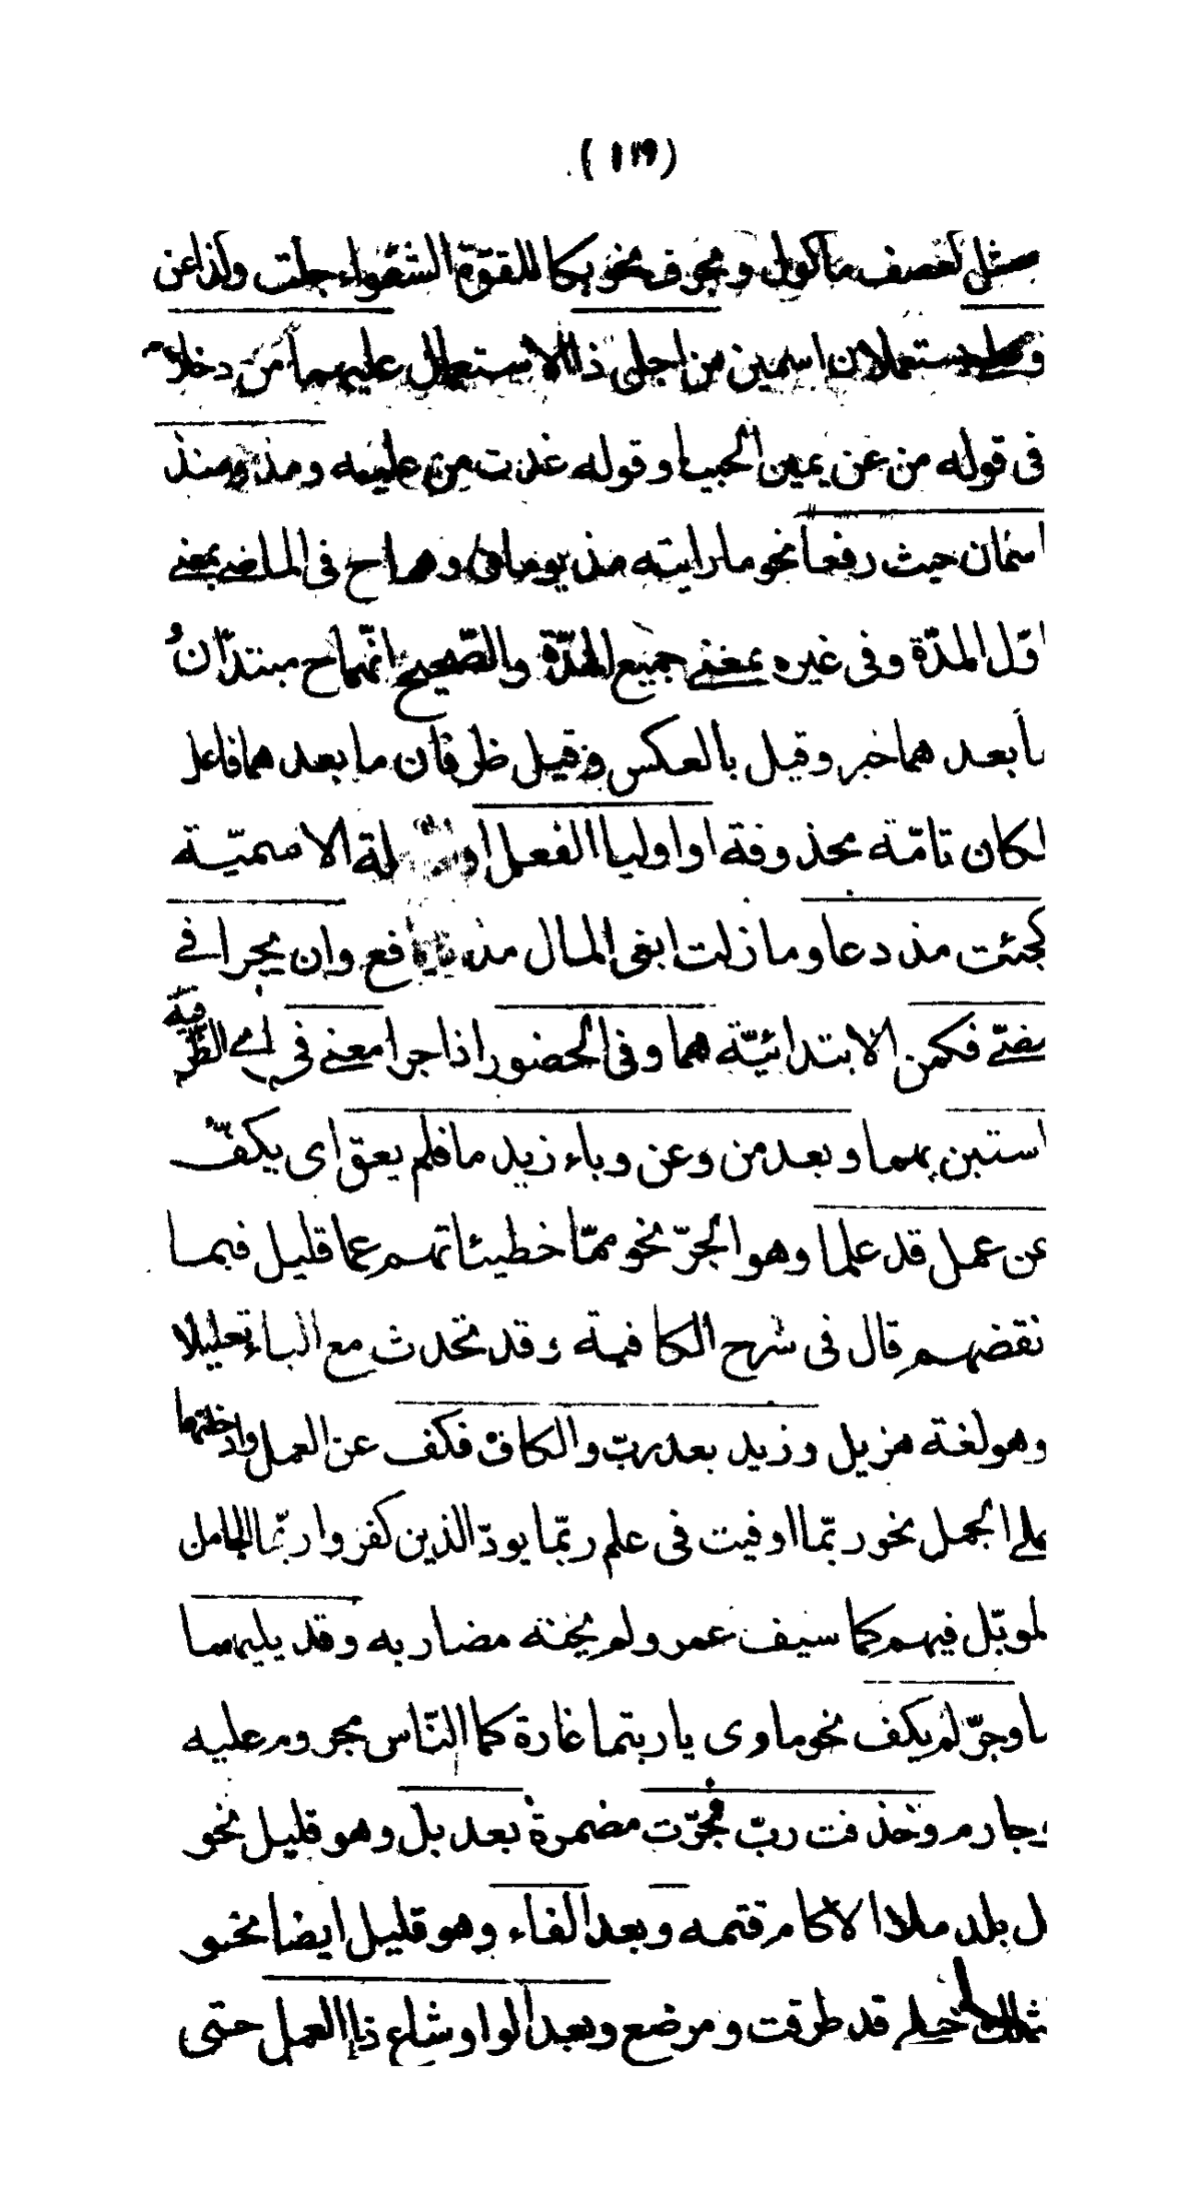 (١٢٩)
مثل كعصف ماكول ومجرف نحو بكا للقوّة الشغواء جلت وكذا عن
وعلى يستعملان اسمين من اجل ذا الاستعمال عليهما من دخلا
فى قوله من عن يمين الحبيا وقوله غدت من عليه ومذ ومنذ
اسمان حيث رفعا نحو ما رايته مذ يومان وهما ح فى الماضى بمعنى
اوّل المدّة وفى غيره بمعنى جميع المدّة والصّحيح انّهما ح مبتدآن
ما بعد هما خبر وقيل بالعكس وقيل ظرفان ما بعد هما فاعل
لكان تامّة محذوفة او اوليا الفعل او الجملة الاسميّة
كجئت مذ دعا وما زلت ابغى المال مذ يافع وان يجرا فى
مضىّ فكمن الابتدائيّة هما وفى الحضور اذا جرا معنى فى اى الظرفية
استبن بهما وبعد من وعن وباء زيد ما فلم يعق اى يكفّ
عن عمل قد علما وهو الجرّ نحو ممّا خطيئاتهم عما قليل فبما
نقضهم قال فى شرح الكافية وقد تحدث مع الباء تعليلا
وهو لغة هزيل وزيد بعد ربّ والكاف فكف عن العمل وادخلتهما
على الجمل نحو ربّما اوفيت فى علم ربّما يودّ الذين كفروا ربّما الجامل
لموبّل فيهم كما سيف عمر ولم يخنه مضاربه وقد يليهما
ما وجرّ لم يكف نحو ماوى يا ربتما غارة كما النّاس مجروم عليه
وجارم وحذفت ربّ فجرّت مضمرة بعد بل وهو قليل نحو
بل بلد ملا الاكام قتمه وبعد الفاء وهو قليل ايضا نحو
فمثلك حبلى قد طرقت ومرضع وبعد الواو شاع ذا العمل حتى